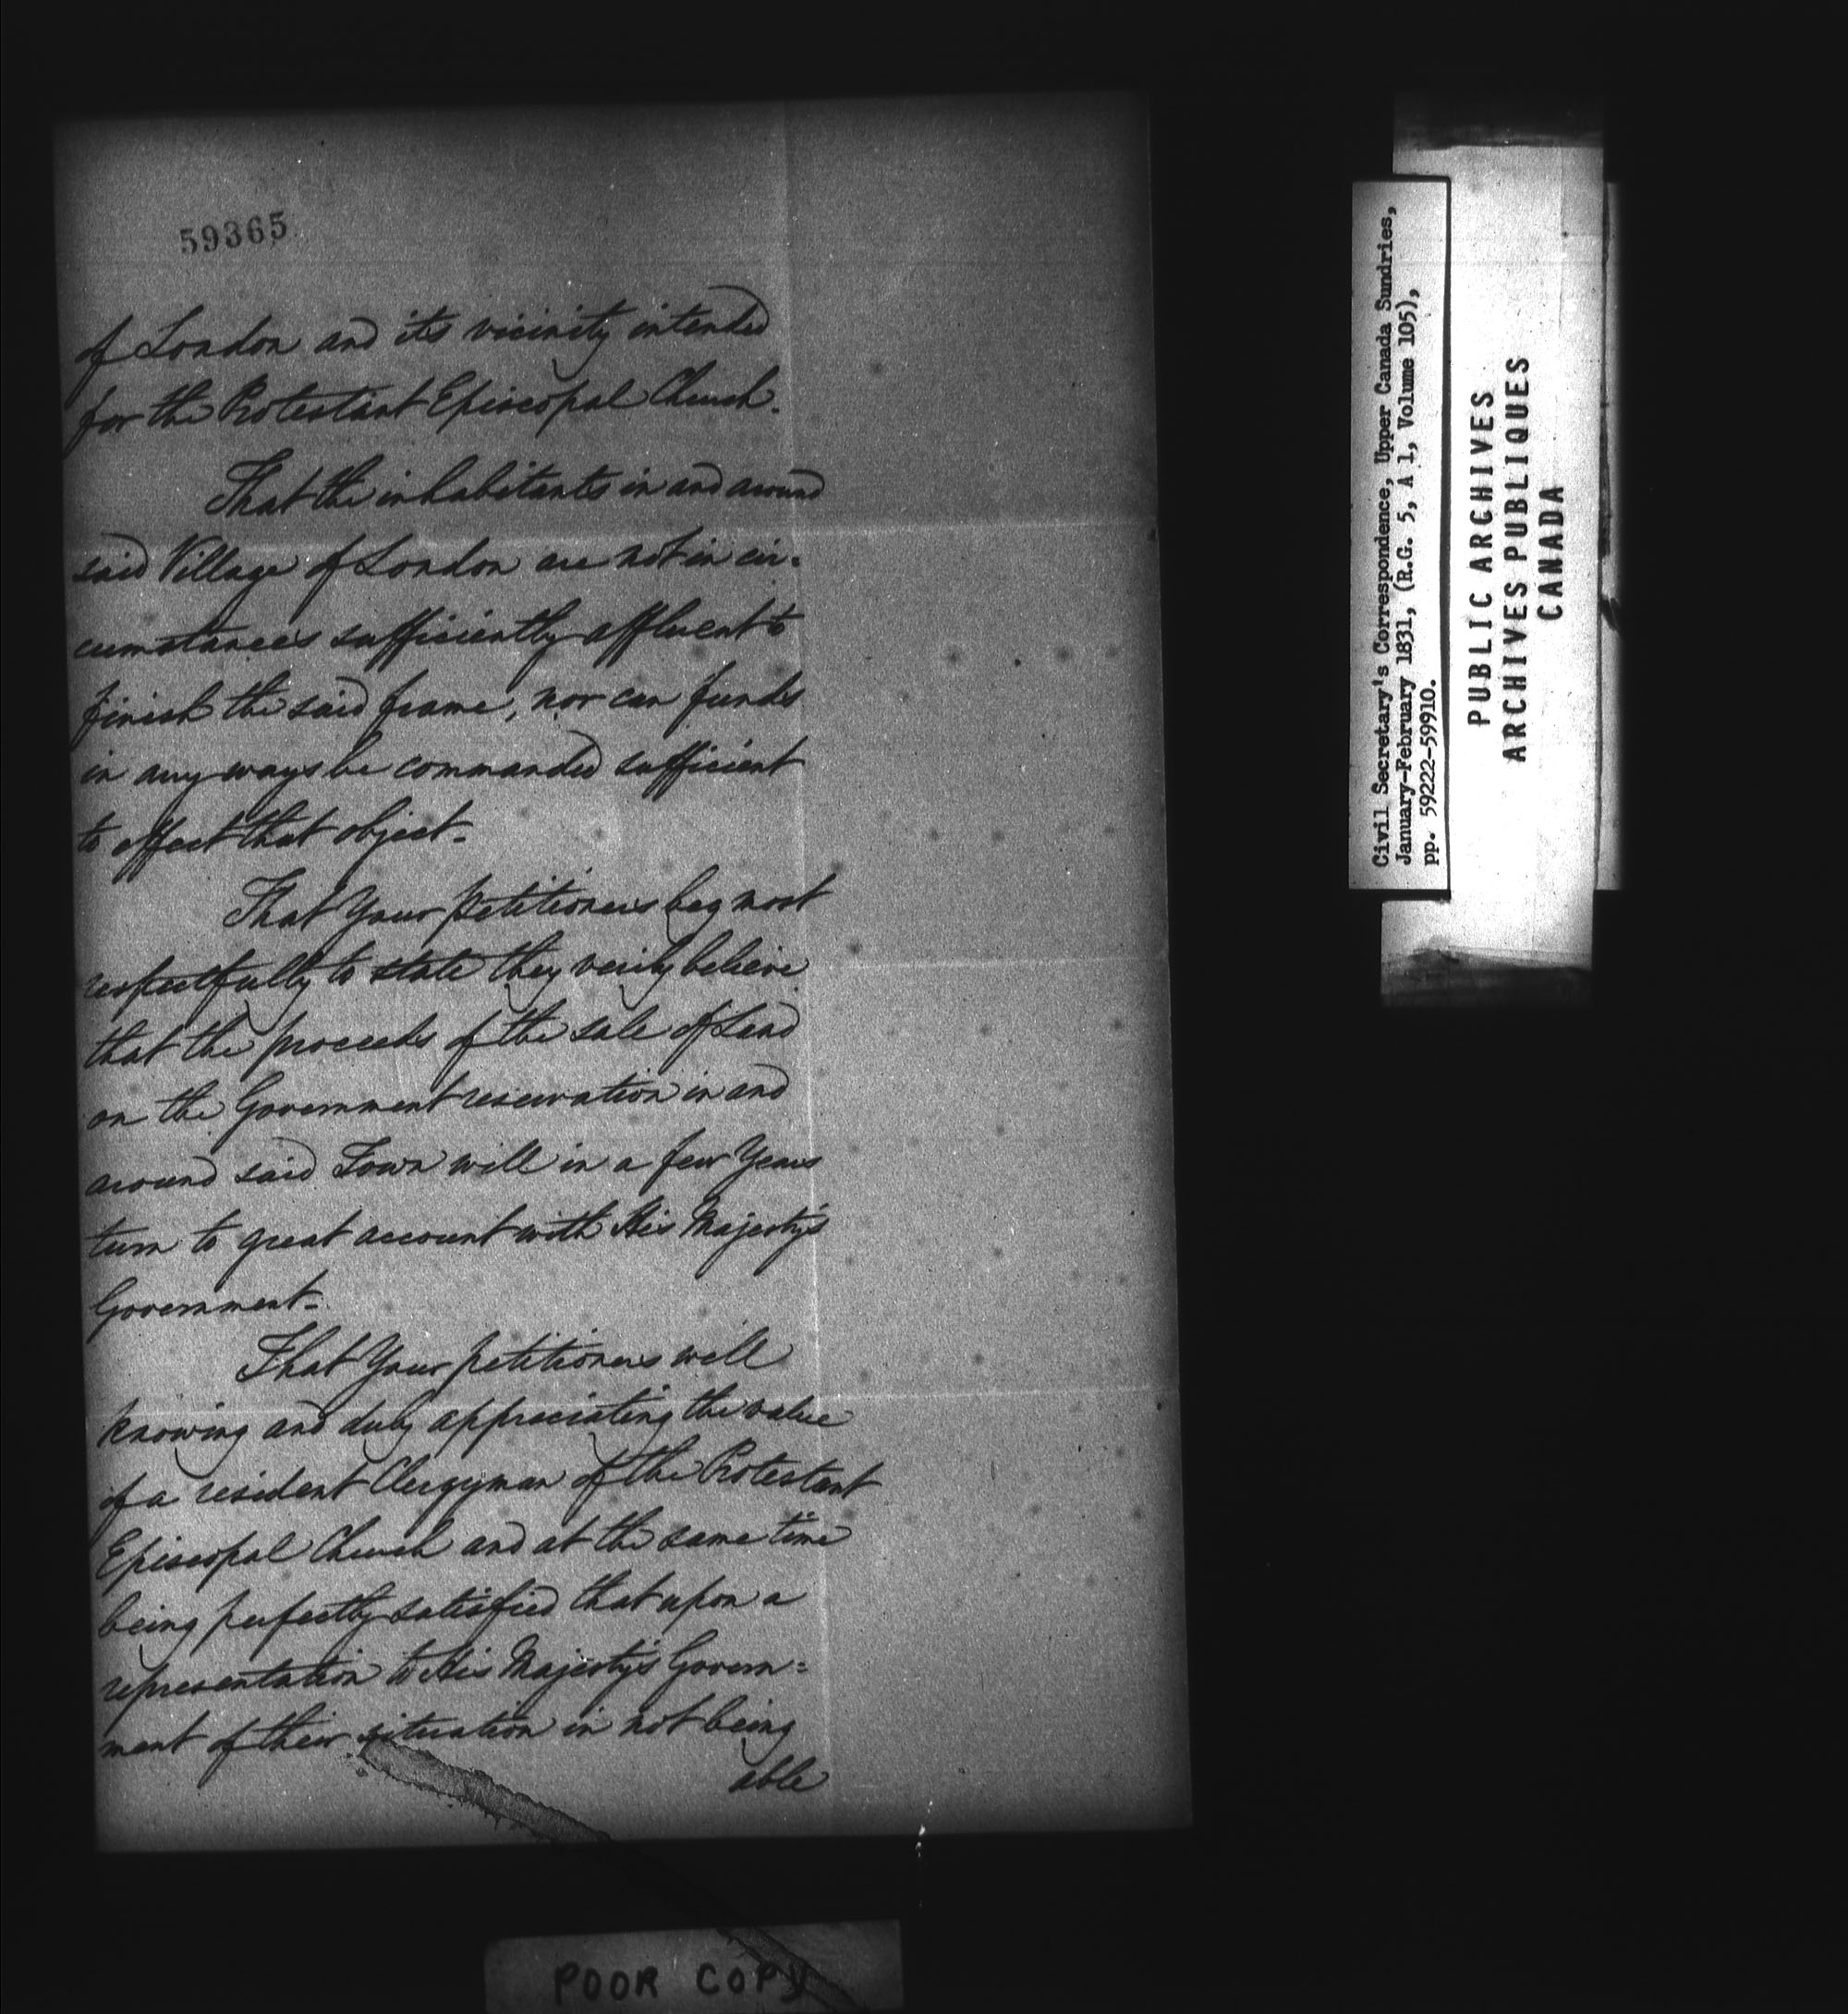 59365
of London and its vicinity intended
for the Protestant Episcopal Church.
That the inhabitants in and around
said Village of London are not in cir=
cumstances sufficiently affluent to
finish the said frame, nor can funds
in any ways be commanded sufficient
to effect that object=
That Your petitioners beg most
respectfully to state they verily believe
that the proceeds of the sale of Land
on the Government reservation in and
around said Town will in a few Years
turn to great account with His Majesty's
Government=
That Your petitioners well
knowing and duly appreciating the value
of a resident Clergyman of the Protestant
Episcopal Church and at the same time
being perfectly satisfied that upon a
representation to His Majesty's Govern=
ment of their situation in not being
able
Civil Secretary's Correspondence, Upper Canada Sundries,
January-February 1831, (R.G. 5, A 1, Volume 105),
pp. 59222-59910.
PUBLIC ARCHIVES
ARCHIVES PUBLIQUES
CANADA
POOR COPY